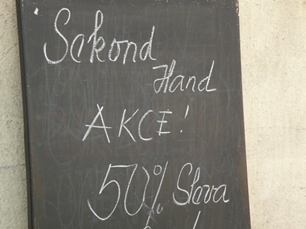 Sekond
Hand
AKCE!
50% Sleva